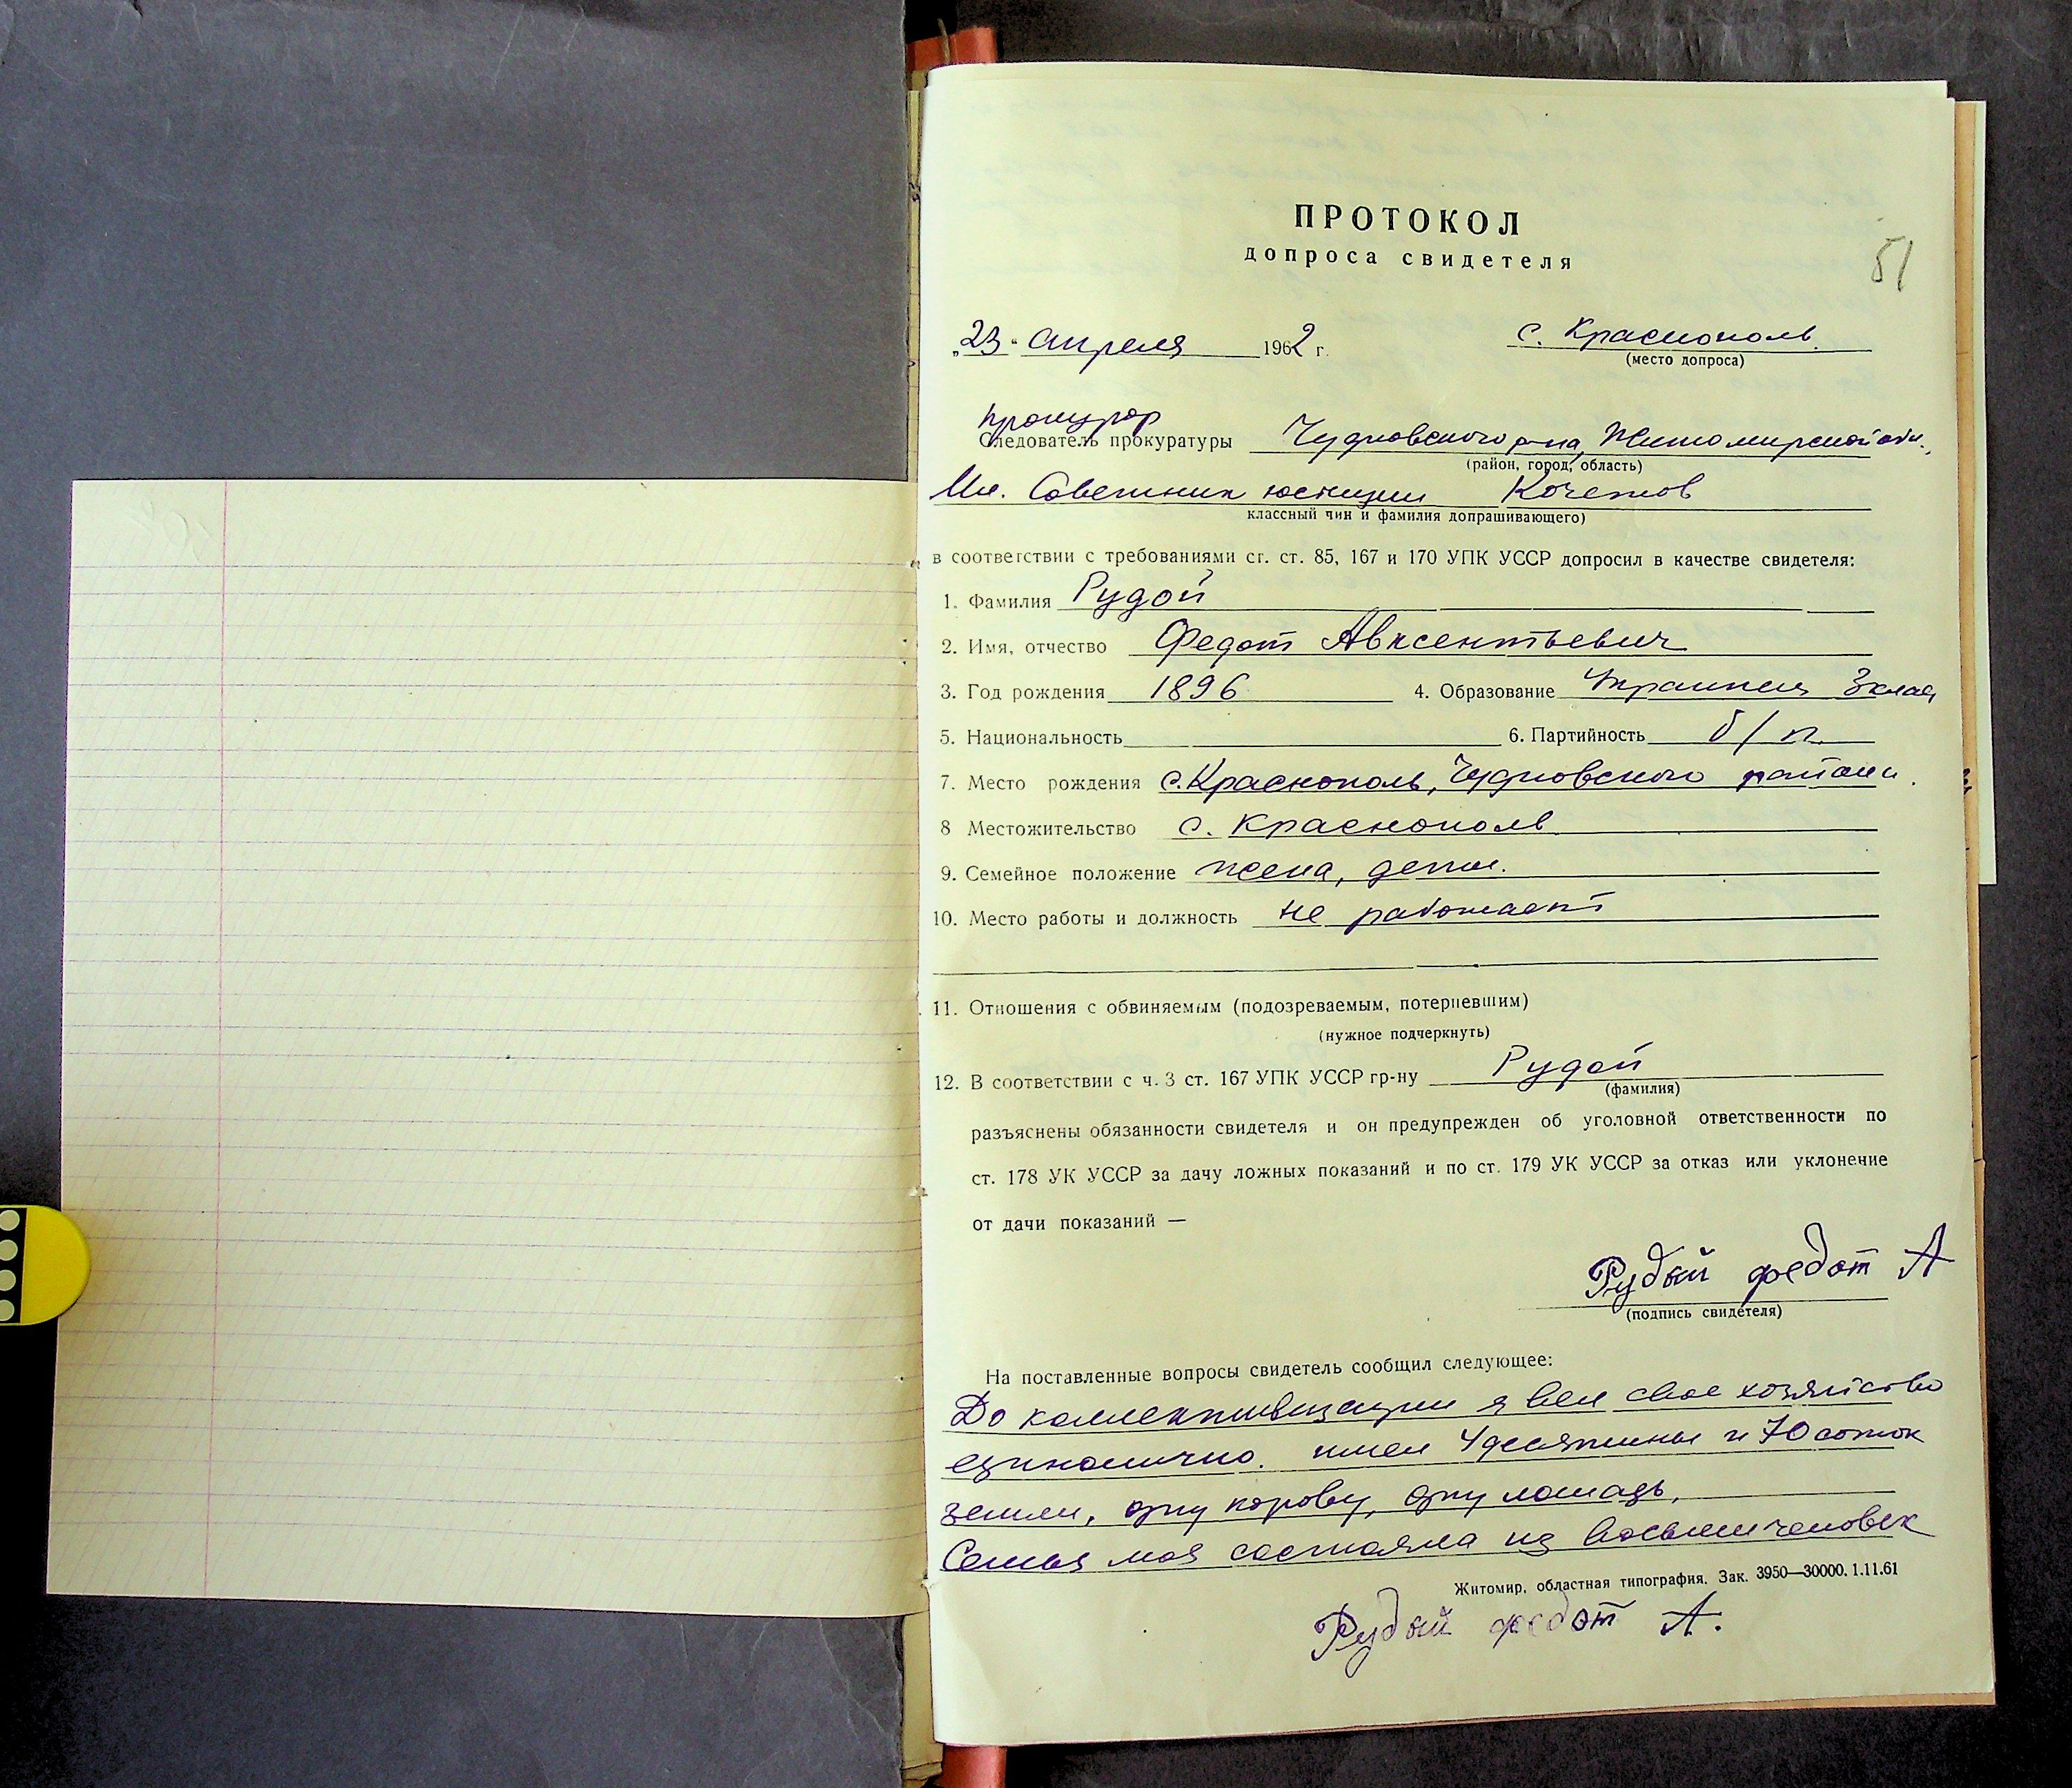 ПРОТОКОЛ
допроса свидетеля
51
„23" апреля 1962 г.
с. Краснополь
(место допроса)
прокурор
Следователь прокуратуры Чудновского р-на, Житомирской обл.,
(район, город, область)
Мл. Советник юстиции Кочетов
классный чин и фамилия допрашивающего)
в соответствии с требованиями ст. ст. 85, 167 и 170 УПК УССР допросил в качестве свидетеля:
1. Фамилия Рудой
2. Имя, отчество Федот Авксентьевич
3. Год рождения 1896 4. Образование 3 клас
5. Национальность 6. Партийность б/п
7. Место рождения с. Краснополь, Чудновского района.
8 Местожительство с. Краснополь
9. Семейное положение жена, дети.
10. Место работы и должность не работает
11. Отношения с обвиняемым (подозреваемым, потерпевшим)
(нужное подчеркнуть)
12. В соответствии с ч. 3 ст. 167 УПК УССР гр-ну Рудой
(фамилия)
разъяснены обязанности свидетеля и он предупрежден об уголовной ответственности по
ст. 178 УК УССР за дачу ложных показаний и по ст. 179 УК УССР за отказ или уклонение
от дачи показаний —
Рудый федот А
(подпись свидетеля)
На поставленные вопросы свидетель сообщил следующее:
До коллективизации я вел свое хозяйство
единолично. имел 4 десятины и 70 соток
земли, одну корову, одну лошадь.
Семья моя состояла из восьми человек
Житомир, областная типография. Зак. 3950—30000. 1.11.61
Рудый федот А.